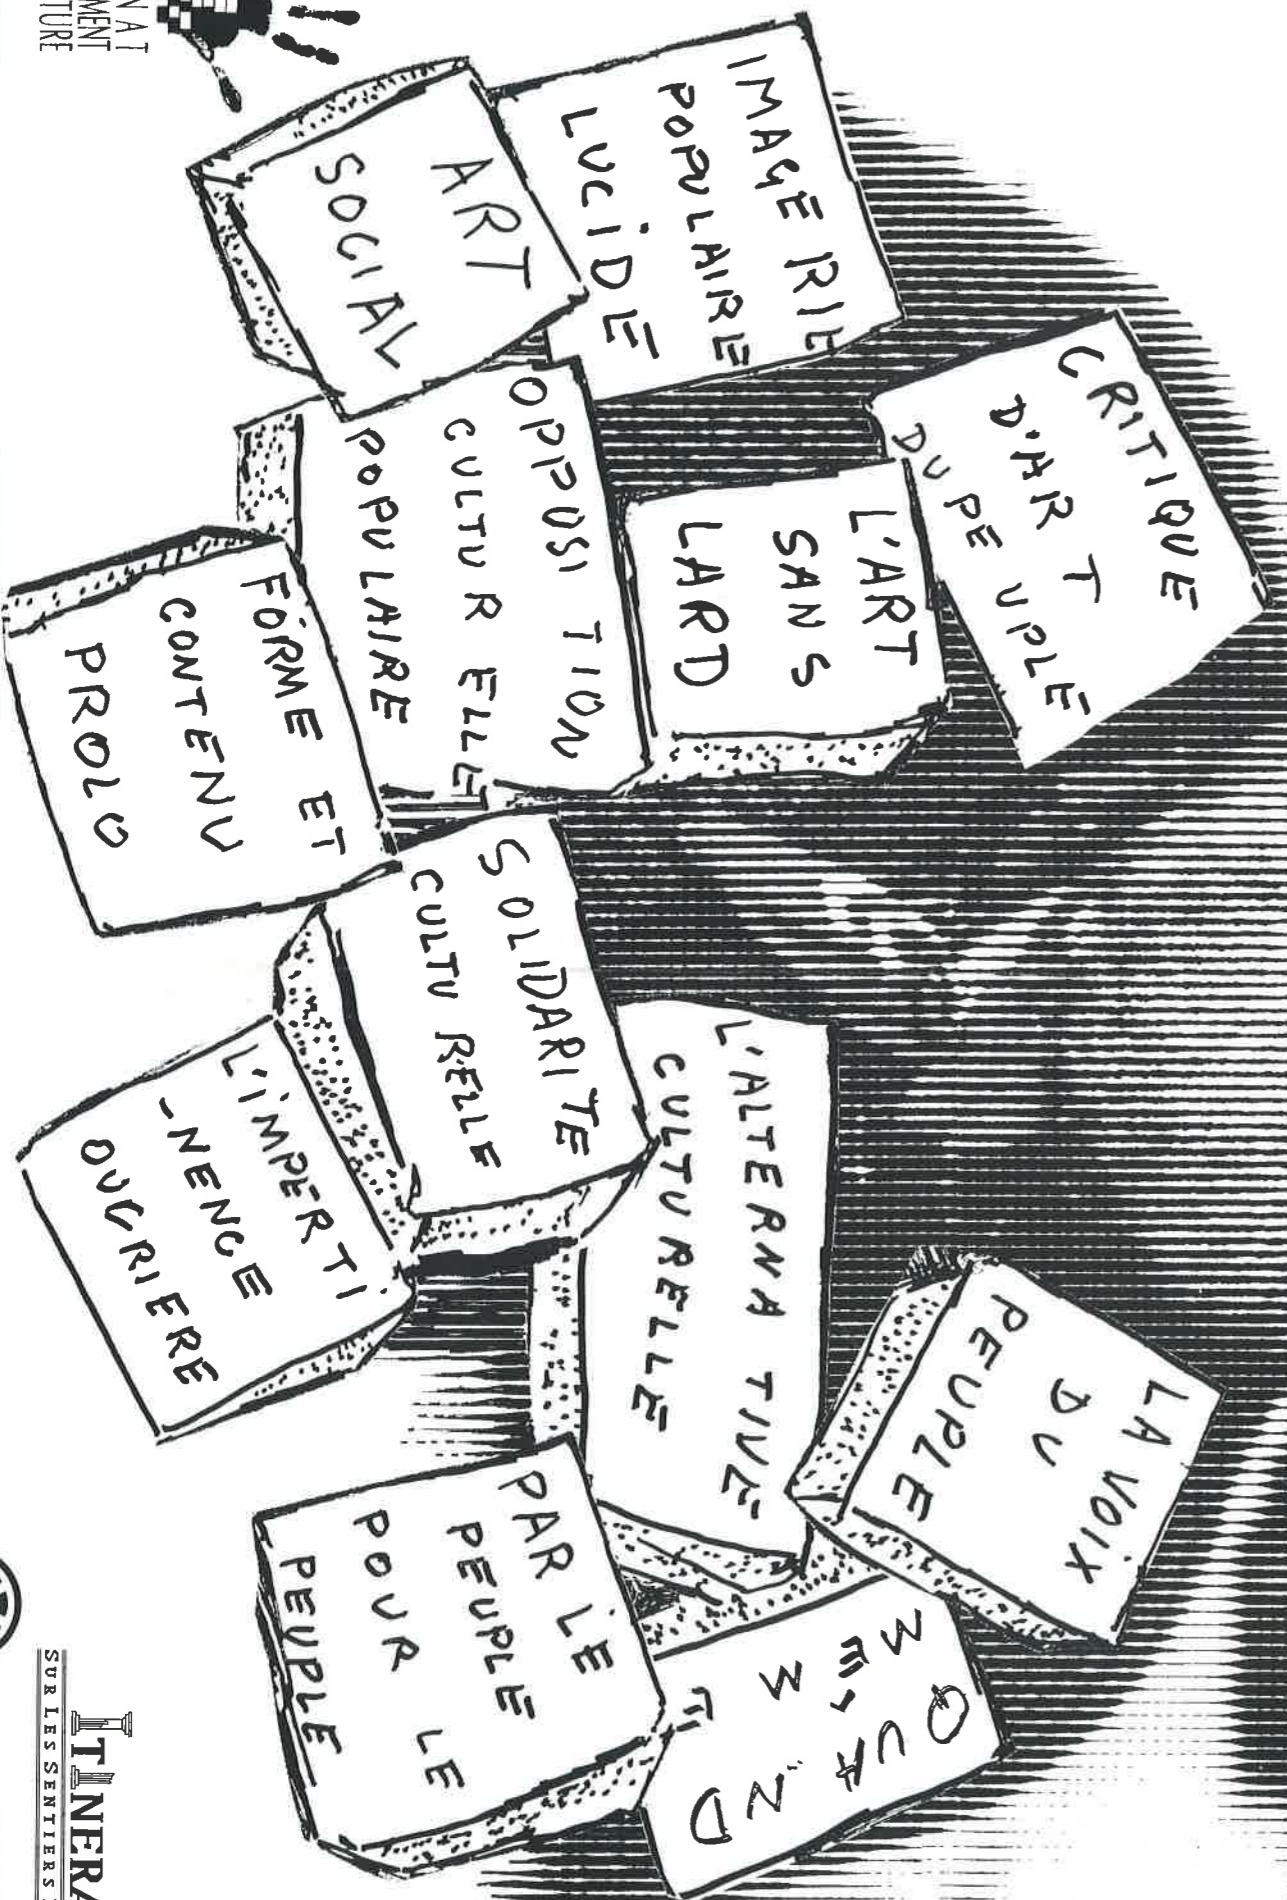 IMAGERIE
POPULAIRE
LUCIDE
ART
SOCIAL
CRITIQUE
D'ART
DU PEUPLE
L'ART
SANS
LARD
OPPOSITION
CULTURELLE
POPULAIRE
FORME ET
CONTENU
PROLO
SOLIDARITE
CULTURELLE
L'IMPERTI
-NENCE
OUVRIERE
L'ALTERNATIVE
CULTURELLE
LA VOIX
DU
PEUPLE
QUAND
MEME
PAR LE
PEUPLE
POUR LE
PEUPLE
SUR LES SENTIERS